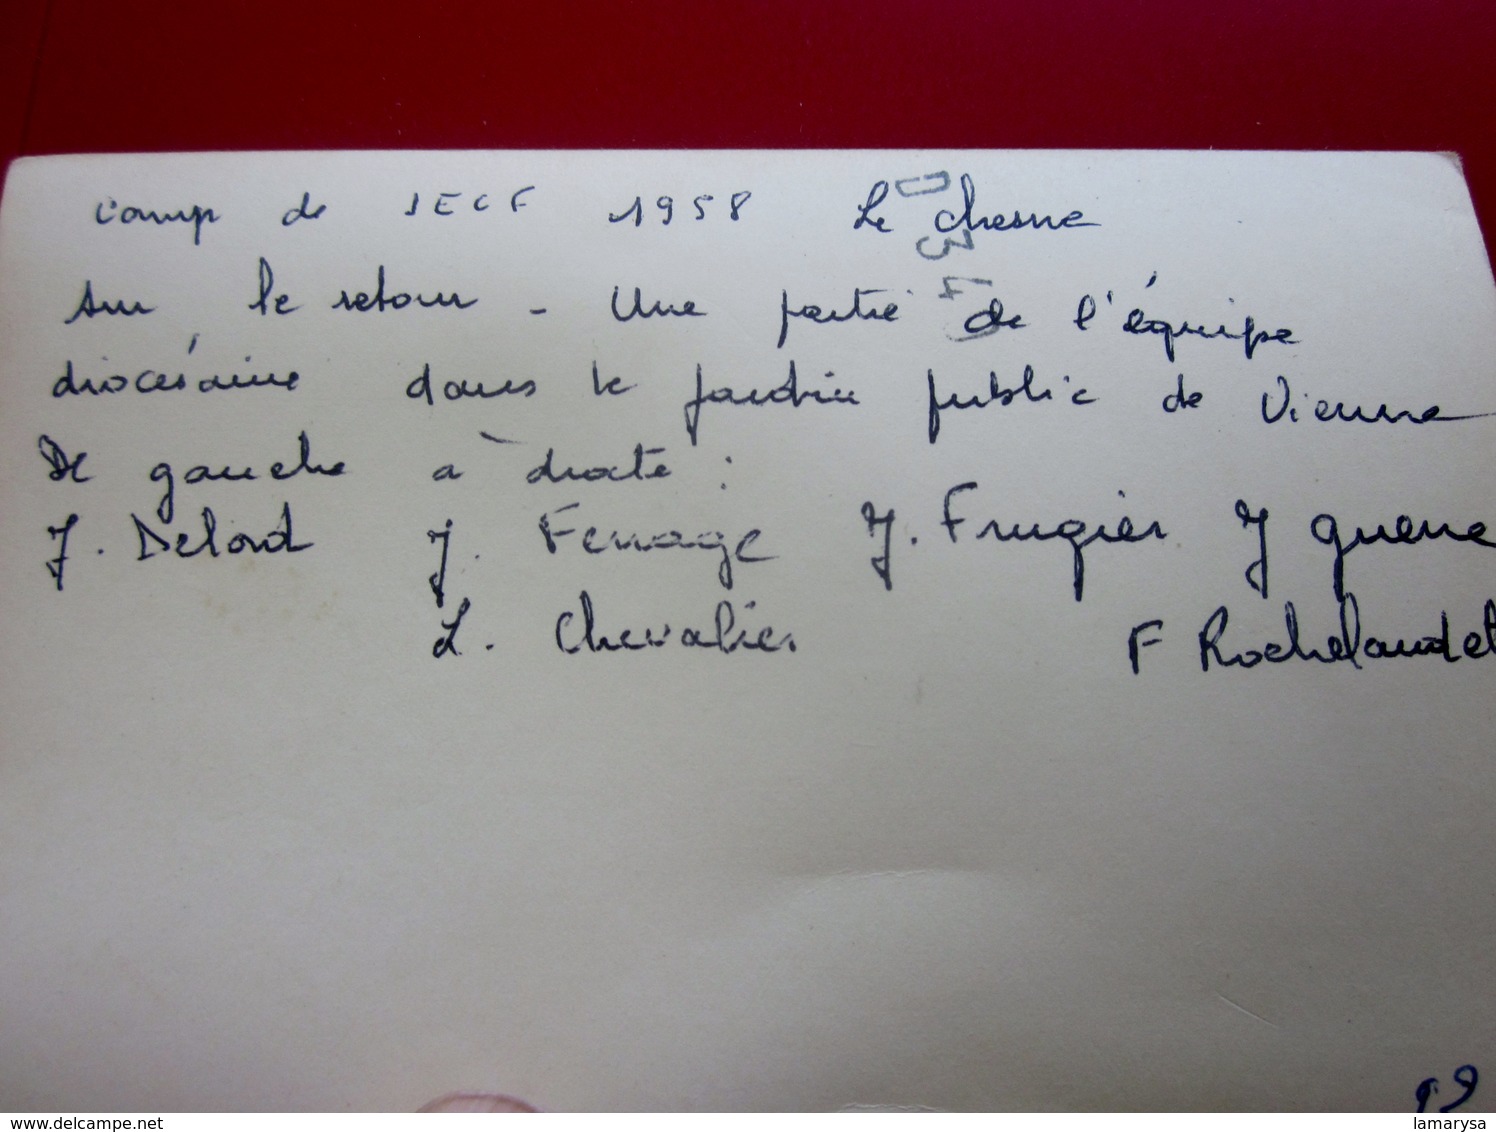 Camp de JECF 1958 Le Chesne
sur le retour - Une partie de l'équipe
diocésaine dans le jardin public de Vienne
De gauche à droite :
J. Delord J. Ferrage J. Frugier J Guerre
L. Chevalier F Rochelaudet
www.delcampe.net lamarysa